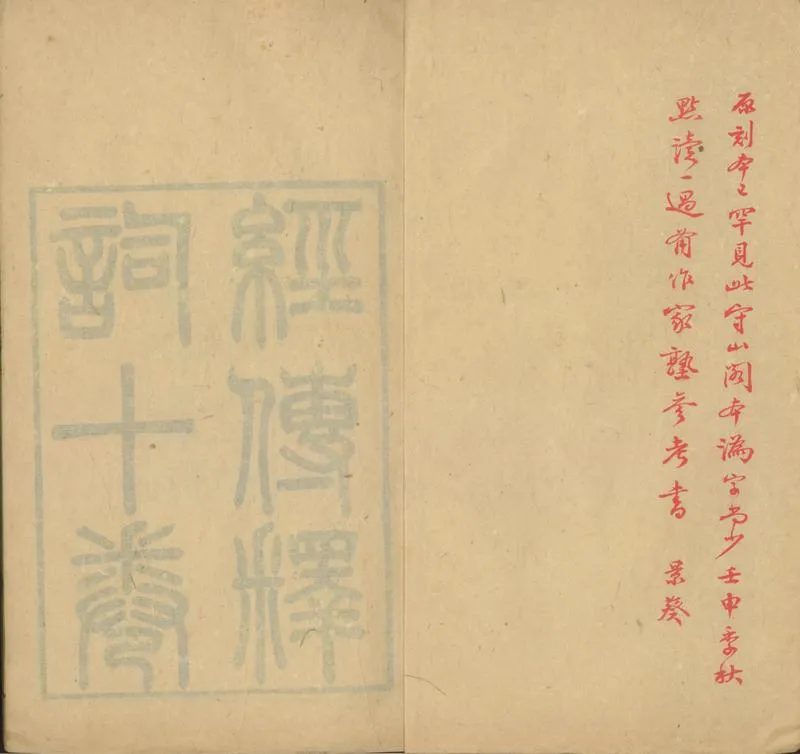 原刻本已罕見此守山閣本譌字尚少壬申季秋
點讀一過留作家塾參考書 景葵
經傳釋
詞十卷